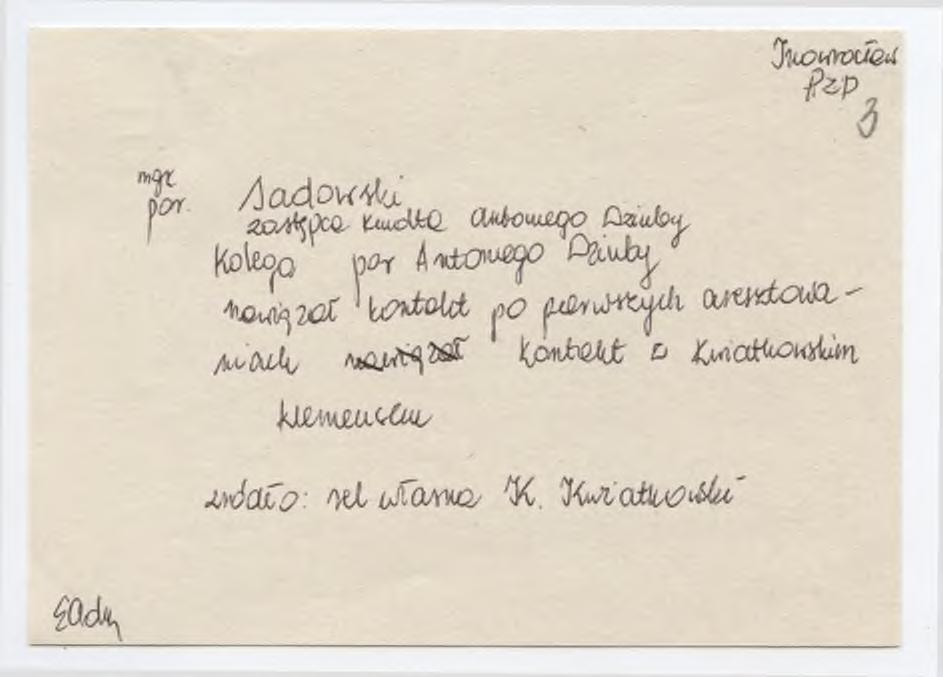 Inowrocław
PZP
3
mgr
por. Sadowski
zastępca kmdta Antoniego Dziuby
Kolega por Antoniego Dziuby
nawiązał kontakt po pierwszych aresztowa-
niach nawiązał kontakt z Kwiatkowskim
Klemensem
zródło: rel własna K. Kwiatkowski